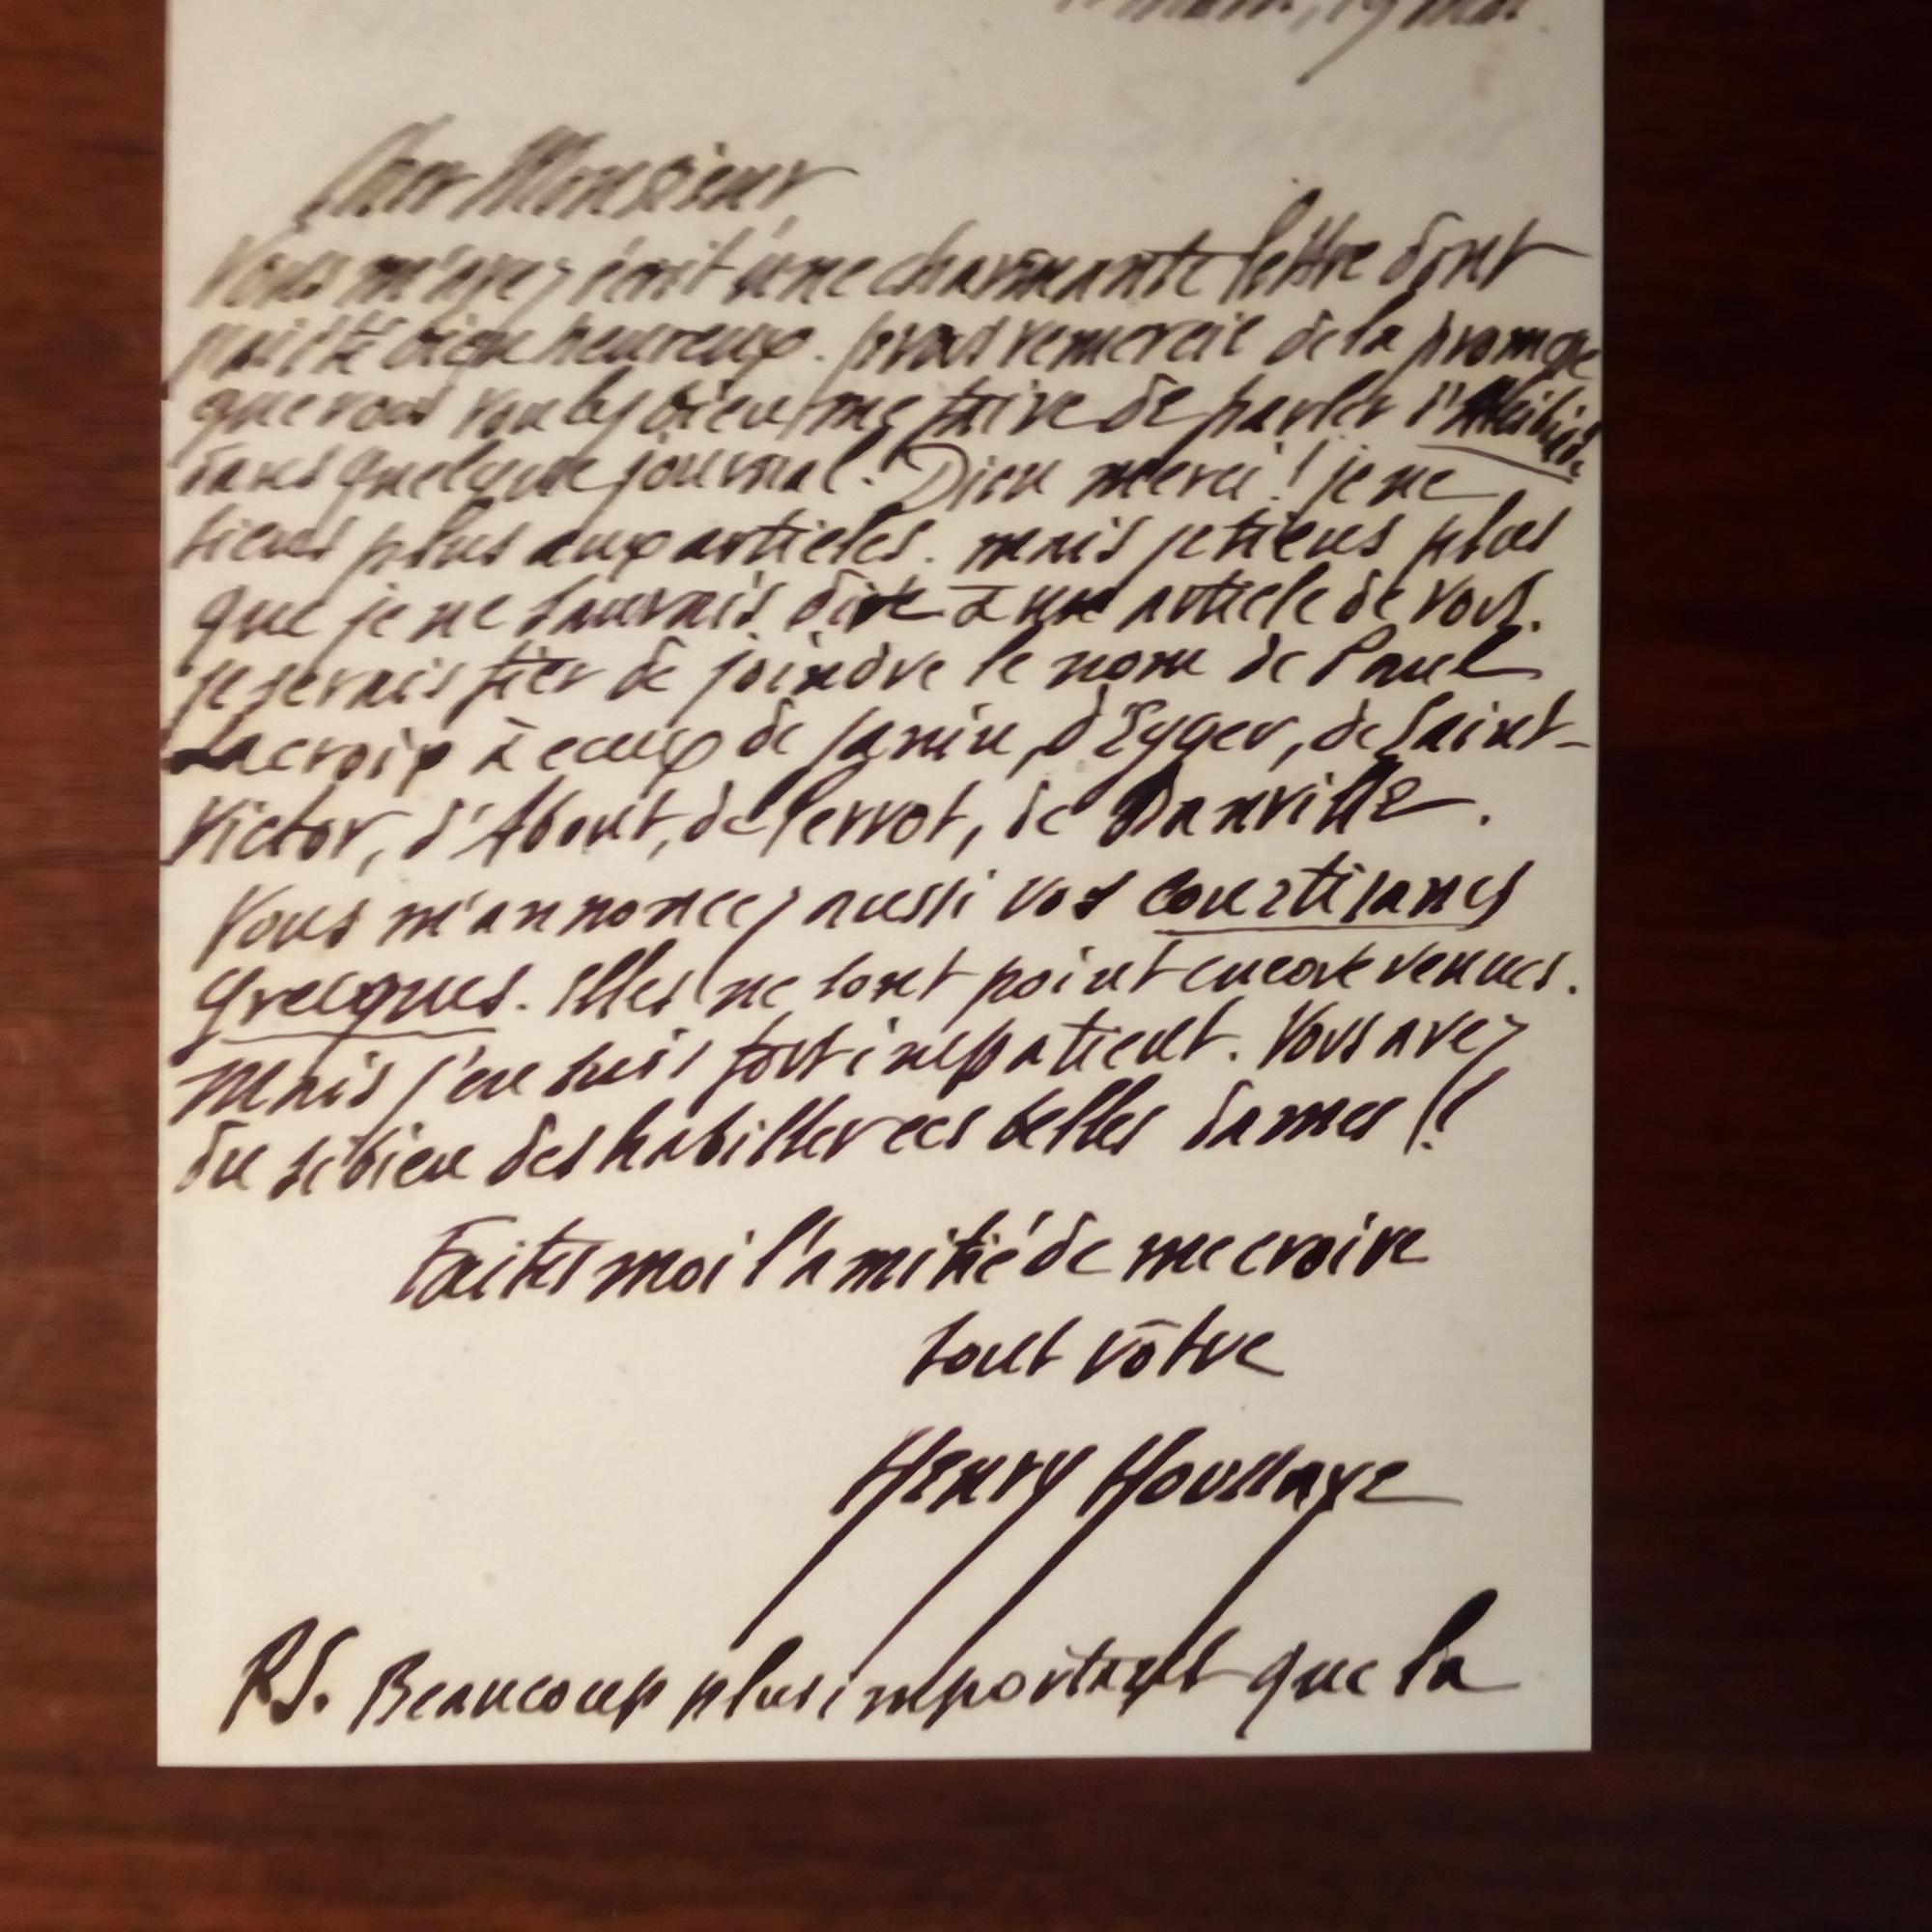 19 mai.
Cher Monsieur,
Vous m'avez écrit une charmante lettre dont
j'ai été bien heureux. je vous remercie de la promesse
que vous voulez bien me faire de parler d'Alcibiade
dans quelque journal. Dieu merci! je ne
tiens plus aux articles. mais je tiens plus
que je ne saurais dire à un article de vous.
je serais fier de joindre le nom de Paul
Lacroix à ceux de Janin, d'Egger, de Saint-
Victor, d'About, de Perrot, de Banville.
Vous m'annoncez aussi vos courtisanes
grecques. Elles ne sont point encore venues.
Mais j'en suis fort impatient. Vous avez
du si bien deshabiller ces belles dames!!
Faites moi l'amitié de me croire
tout vôtre
Henry Houssaye
P.S. Beaucoup plus important que la